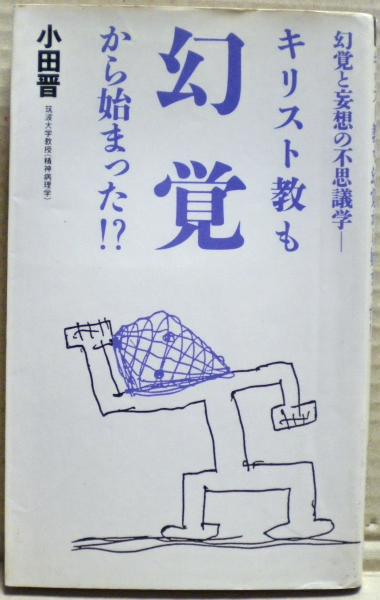 幻覚と妄想の不思議学―
キリスト教も
幻覚
から始まった!?
小田晋
筑波大学教授(精神病理学)